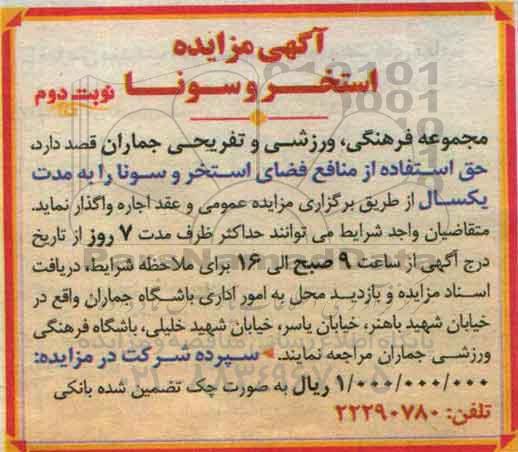 آگهی مزایده
استخر و سونا
نوبت دوم
مجموعه فرهنگی، ورزشی و تفریحی جماران قصد دارد،
حق استفاده از منافع فضای استخر و سونا را به مدت
یکسال از طریق برگزاری مزایده عمومی و عقد اجاره واگذار نماید.
متقاضیان واجد شرایط می توانند حداکثر ظرف مدت ۷ روز از تاریخ
درج آگهی از ساعت ۹ صبح الی ۱۶ برای ملاحظه شرایط، دریافت
اسناد مزایده و بازدید محل به امور اداری باشگاه جماران واقع در
خیابان شهید باهنر، خیابان یاسر، خیابان شهید خلیلی، باشگاه فرهنگی
ورزشی جماران مراجعه نمایند. سپرده شرکت در مزایده:
۱/۰۰۰/۰۰۰/۰۰۰ ریال به صورت چک تضمین شده بانکی
تلفن: ۲۲۲۹۰۷۸۰